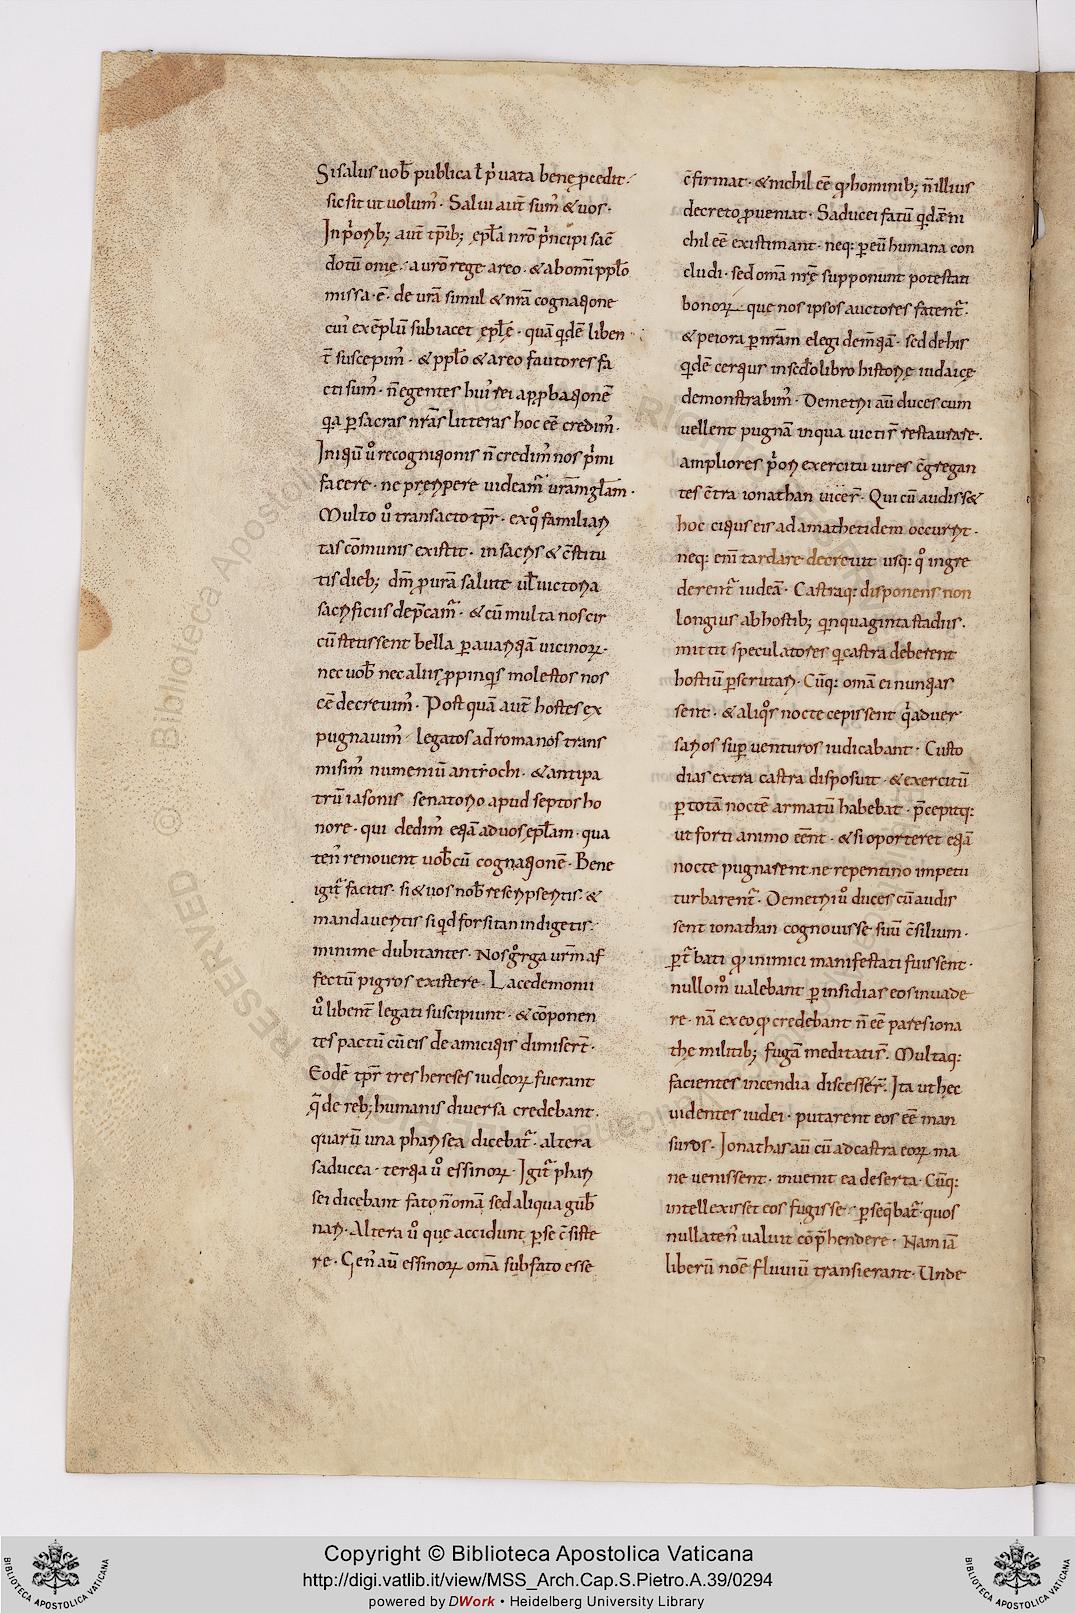 Si salus uob̄ publica ł p̓uata bene p̱cedit.
sic sit ut uolum̓. Salui aut̄ sum̓ & uos.
In p̓orib; aut̄ tp̄ib; ep̄la nr̄o p̓ncipi sac̄
dotū onie. a ur̄o rege areo. & ab omī pplo
missa .ē. de ur̄a simul & nr̄a cognatione
cui̓ exēplū subiacet ep̄le. quā qdē liben
t̄ suscepim̓. & pplo & areo fautores fa
cti sum̓. n̄ egentes hui̓ rei app̱bationē
qa ꝑ sacras nr̄as litteras hoc eē credim̓.
Iniquū u̓o recognitionis n̄ credim̓ nos p̓mi
facere. ne preripere uideam̓ ur̄am glam.
Multo u̓o transacto tpr̄. ex qo familiari
tas cōmunis existit. in sacris & c̄stitu
tis dieb; dm̄ ꝓ ur̄a salute ul̄ uictoria
sacrificiis dep̄cam̓. & cū multa nos cir
cū stetissent bella ꝑ auaritiā uicinorꝝ.
nec uob̄ nec aliis ꝓpinqis molestos nos
eē decreuim̓. Postquā aut̄ hostes ex
pugnauim̓ legatos ad romanos trans
misim̓ numeniū antiochi. & antipa
trū iasonis senatorio apud septos ho
nore. qui dedim̓ etiā ad uos ep̄lam. qua
ten̓ renouent uob̄cū cognationē. Bene
igit̓ facitis. si & uos nob̄ rescripseritis. &
mandaueritis si qd forsitan indigetis.
minime dubitantes. Nos g̊ erga ur̄m af
fectū pigros existere. Lacedemonii
u̓o libent̄ legati suscipiunt. & cōponen
tes pactū cū eis de amicitiis dimiser̄t.
Eodē tpr̄ tres hereses iudeorꝝ fuerant
q̄ de reb; humanis diuersa credebant.
quarū una pharisea dicebat̓. altera
saducea. tertia u̓o essinorꝝ. Igit̓ phari
sei dicebant fato n̄ omā sed aliqua gub̄
nari. Altera u̓o que accidunt ꝑ se c̄siste
re. Gen̓ aū essinorꝝ omā sub fato esse
c̄firmat. & nichil eē qđ hominib; n̄ illius
decreto ꝓueniat. Saducei fatū qdē ni
chil eē existimant. neq: ꝑ eū humana con
cludi. sed omā nr̄e supponunt potestati
bonorꝝ. que nos ipsos auctores fatent̓.
& peiora ꝑ nr̄am elegi dem̄tiā. sed de his
qdē certius in secd̄o libro historie iudaice
demonstrabim̓. Demetrii aū duces cum
uellent pugnā in qua uicti s̄ restaurare.
ampliores p̓ori exercitu uires c̄gregan
tes c̄tra ionathan uicer̄. Qui cū audiss&
hoc citius eis ad amathetidem occurrit.
neq: eni̓ tardare decreuit usq: qo ingre
derent̓ iudeā. Castraq: disponens non
longius ab hostib; qinquaginta stadiis.
mittit speculatores q castra deberent
hostiū ꝑscrutari. Cūq: omā ei nuntias
sent. & aliqos nocte cepissent q aduer
sarios suꝑ uenturos iudicabant. Custo
dias extra castra disposuit. & exercitū
ꝑ totā noctē armatū habebat. p̄cepitq:
ut forti animo eēnt. & si oporteret etiā
nocte pugnarent ne repentino impetu
turbarent̓. Demetrii u̓o duces cū audis
sent ionathan cognouisse suū c̄silium.
ꝑt̓bati qđ inimici manifestati fuissent.
nullom̊ ualebant ꝑ insidias eos inuade
re. nā ex eo qđ credebant n̄ eē pares iona
the militib; fugā meditati s̄. Multaq:
facientes incendia discesser̄. Ita ut hec
uidentes iudei. putarent eos eē man
suros. Ionathas aū cū ad castra eorꝝ ma
ne uenissent. inuenit ea deserta. Cūq:
intellexisset eos fugisse ꝑseqbat̓. quos
nullaten̓ ualuit cōp̄hendere. Nam iā
liberū noē fluuiū transierant. Unde
Copyright © Biblioteca Apostolica Vaticana
http://digi.vatlib.it/view/MSS_Arch.Cap.S.Pietro.A.39/0294
powered by DWork • Heidelberg University Library